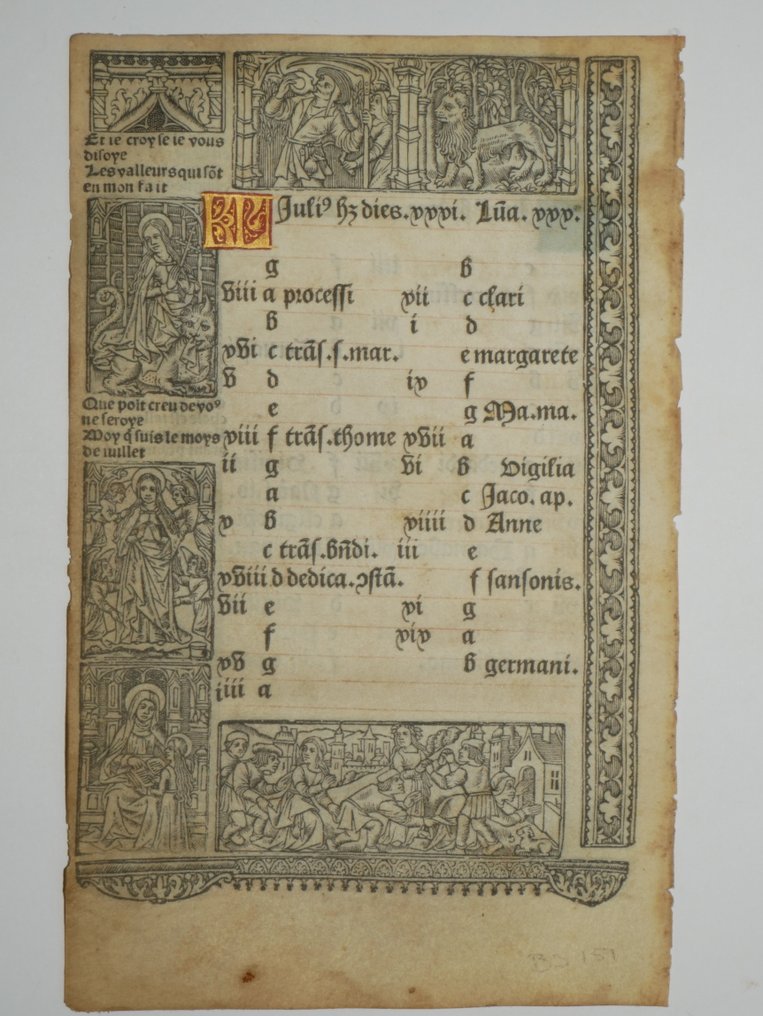 Et ie croy se ie vous
disoye
Les valleurs qui sõt
en mon fait
KL Juliꝰ hꝫ dies. xxxi. Lūa. xxx.
g
viii a processi
b
xvi c trãs. s. mar.
v d
e
xiii f trãs. thome
ii g
a
x b
c trãs. bñdi.
xviii d dedica. ꝯstã.
vii e
f
xv g
iiii a
b
xii c clari
i d
e margarete
ix f
g Ma. ma.
xvii a
vi b Vigilia
c Jaco. ap.
xiiii d Anne
iii e
f sansonis.
xi g
xix a
b germani.
Que poit creu de voꝰ
ne seroye
Moy q̃ suis le moys
de iuillet